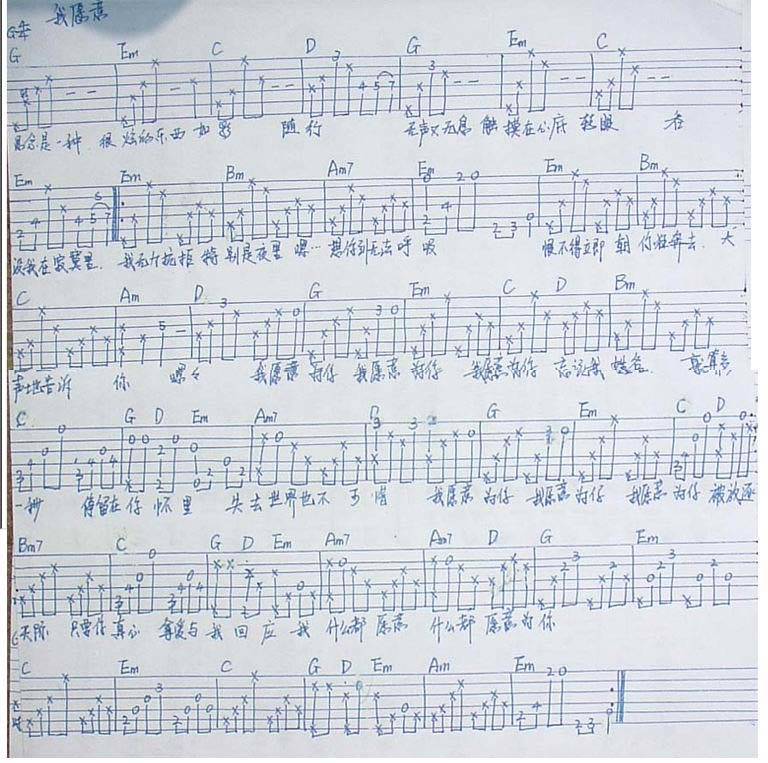 我愿意
G调
G Em C D G Em C
思念是一种 很炫的东西 如影 随行 无声又无息 触摸在心底 转眼 吞
Em Em Bm Am7 Em Em Bm
没我在寂寞里. 我无力抗拒 特别是夜里 嘿… 想你到无法呼吸 恨不得立即 朝你狂奔去. 大
C Am D G Em C D Bm
声地告诉 你 嘿々 我愿意为你 我愿意为你 我愿意为你 忘记我姓名.
C G D Em Am7 D G Em C D
一秒 停留在你怀里 失去世界也不可惜 我愿意为你 我愿意为你 我愿意为你 被放逐
Bm7 C G D Em Am7 Am7 D G Em
天际 只要你真心 拿爱与我回应 我什么都愿意 什么都愿意为你
C Em C G D Em Am Em